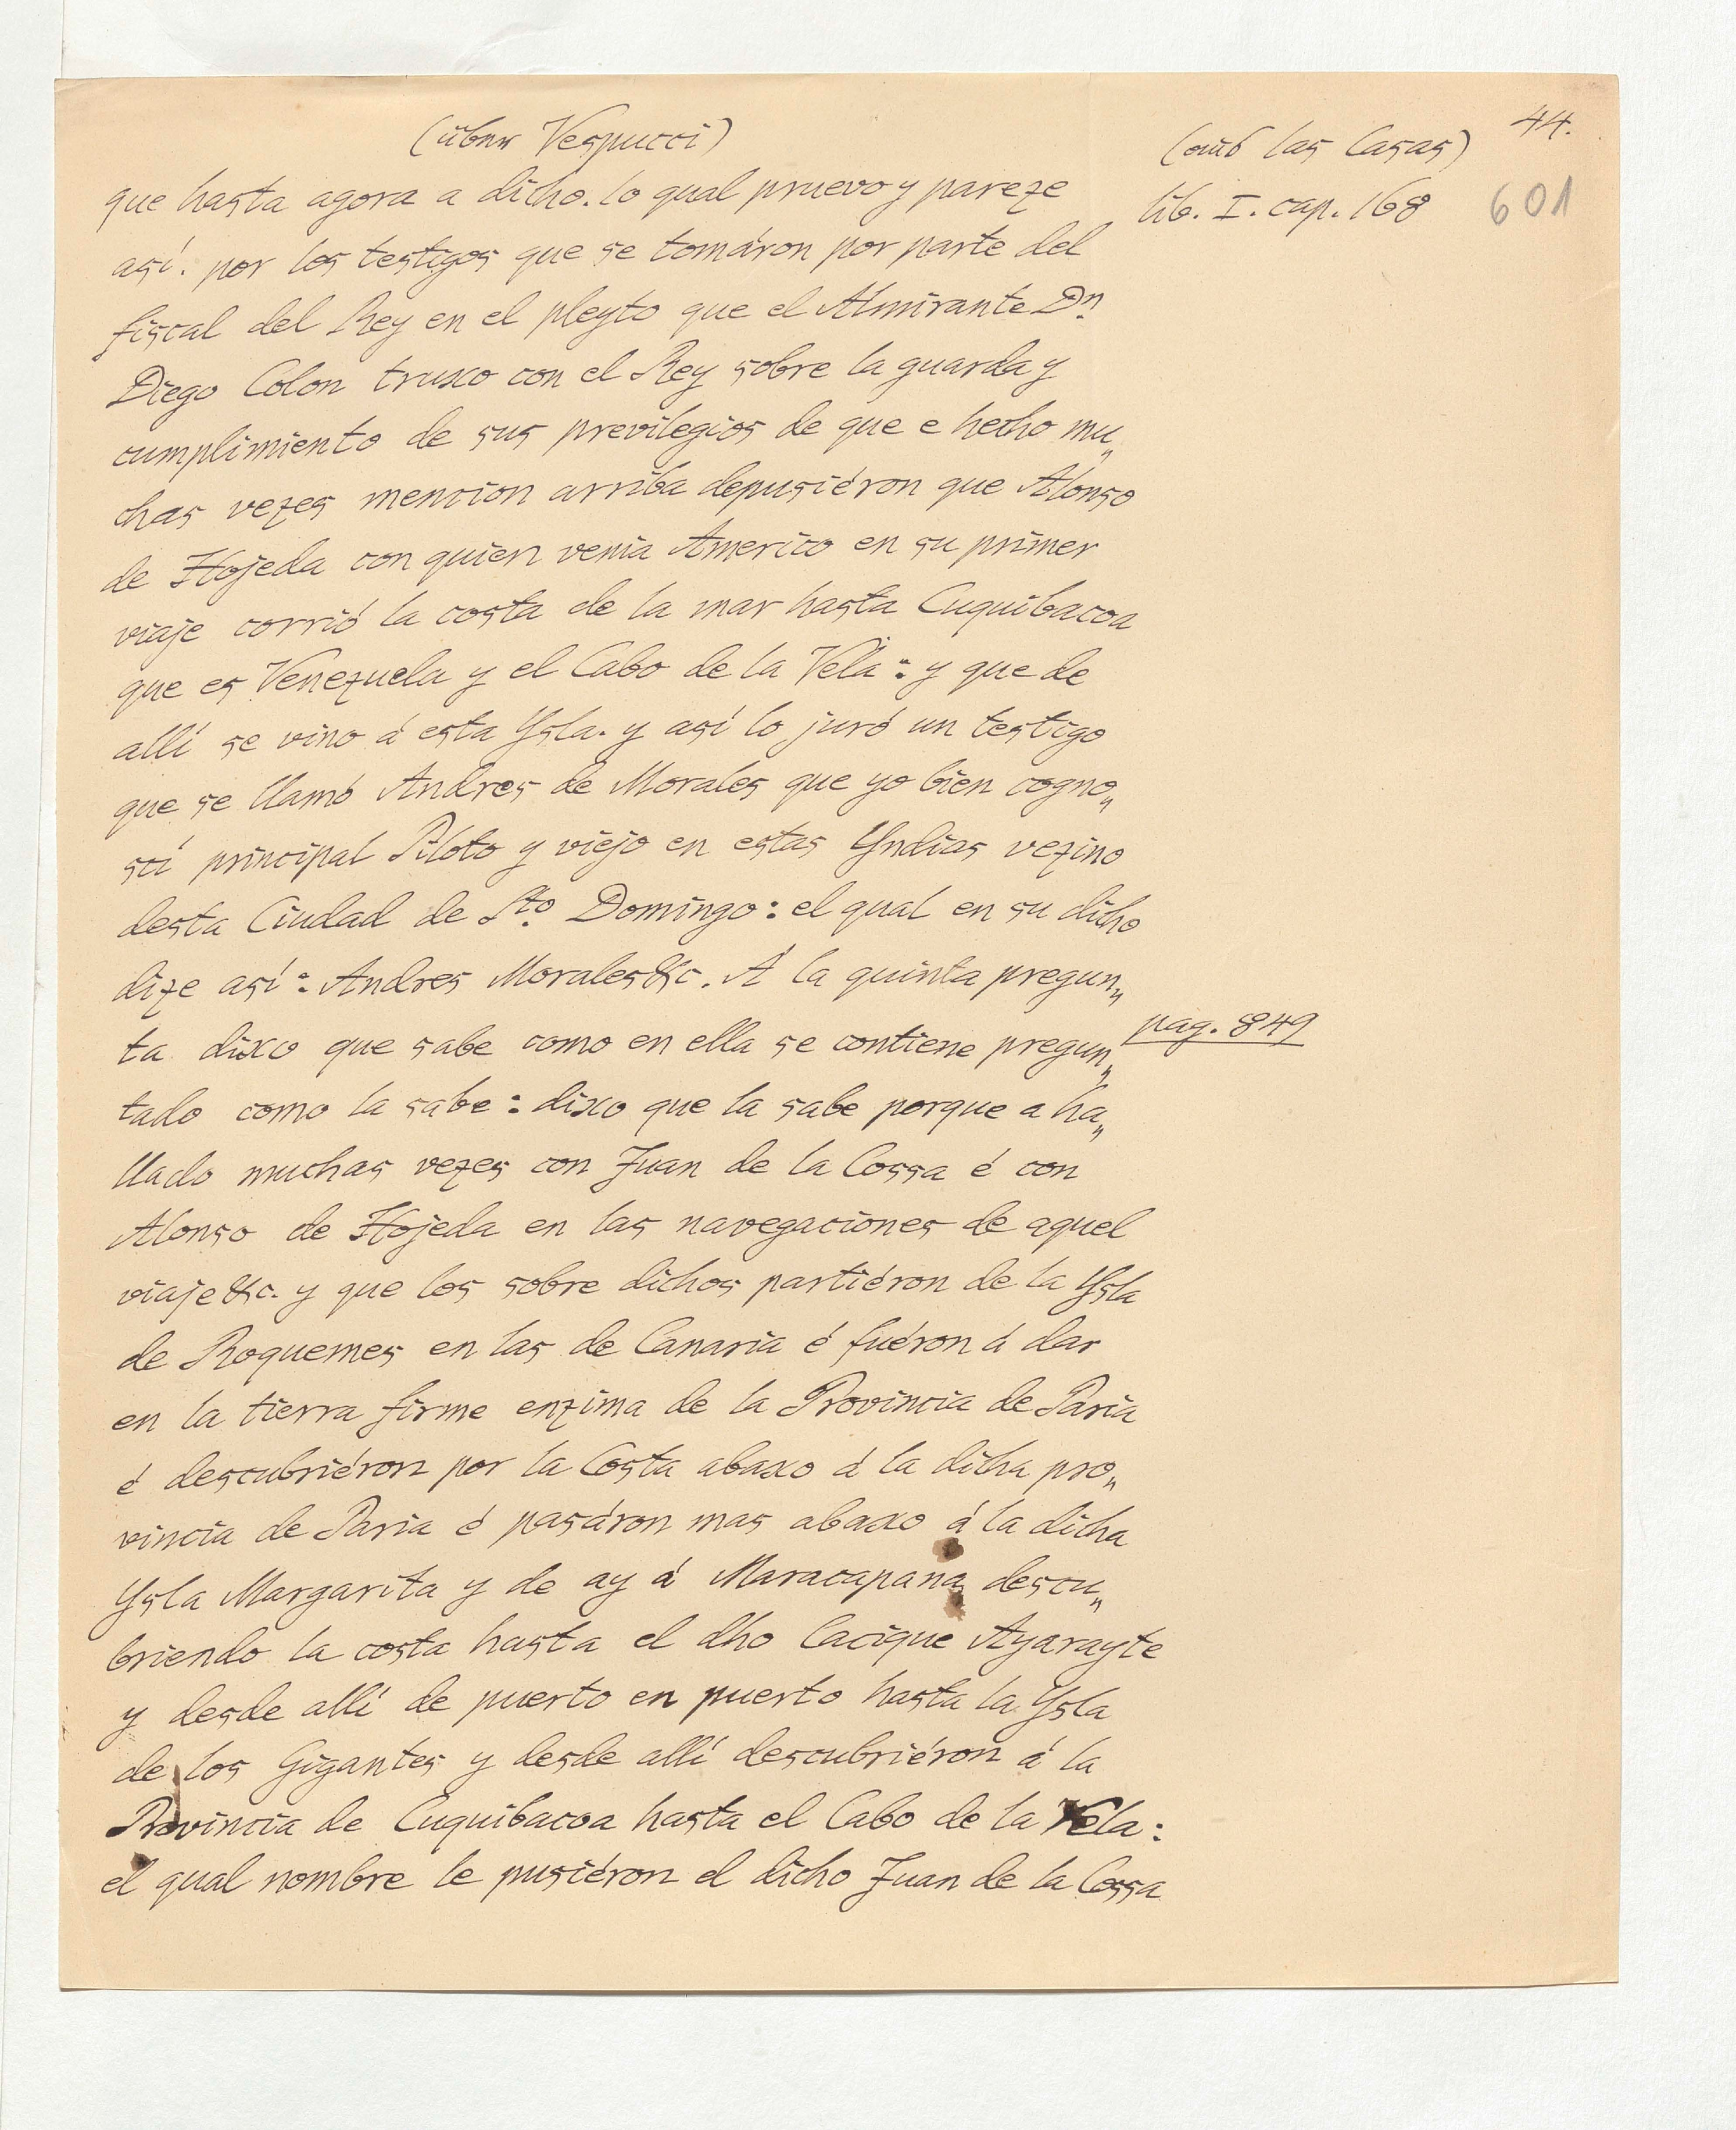 44.
(über Vespucci)
(aus las Casas)
lib. I. cap. 168
601
que hasta agora a dicho. lo qual pruevo y pareze
así. por los testigos que se tomáron por parte del
fiscal del Rey en el pleyto que el Almirante Dn
Diego Colon truxo con el Rey sobre la guarda y
cumplimiento de sus previlegios de que e hecho mu„
chas vezes mencion arriba depusiéron que Alonso
de Hojeda con quien venia Americo en su primer
viaje corrió la costa de la mar hasta Cuquibacoa
que es Venezuela y el Cabo de la Vela: y que de
allí se vino á esta Ysla. y así lo juró un testigo
que se llamó Andres de Morales que yo bien cogno„
scí principal Piloto y viejo en estas Yndias vezino
desta Ciudad de Sto. Domingo: el qual en su dicho
dize así: Andres Morales &c. Á la quinta pregun„
ta dixo que sabe como en ella se contiene pregun„
pag. 849
tado como la sabe: dixo que la sabe porque a ha„
llado muchas vezes con Juan de la Cossa é con
Alonso de Hojeda en las navegaciones de aquel
viaje &c. y que los sobre dichos partiéron de la Ysla
de Roquemes en las de Canaria é fuéron á dar
en la tierra firme enzima de la Provincia de Paria
é descubriéron por la Costa abaxo á la dicha pro„
vincia de Paria é pasáron mas abaxo á la dicha
Ysla Margarita y de ay á Maracapana descu„
briendo la costa hasta el dho Cacique Ayarayte
y desde allí de puerto en puerto hasta la Ysla
de los Gigantes y desde allí descubriéron á la
Provincia de Cuquibacoa hasta el Cabo de la Vela:
el qual nombre le pusiéron el dicho Juan de la Cossa